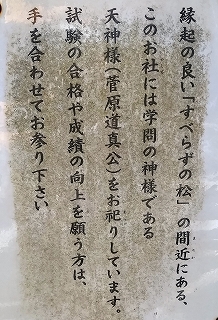 縁起の良い「すべらずの松」の間近にある、
このお社には学問の神様である
天神様(菅原道真公)をお祀りしています。
試験の合格や成績の向上を願う方は、
手を合わせてお参り下さい